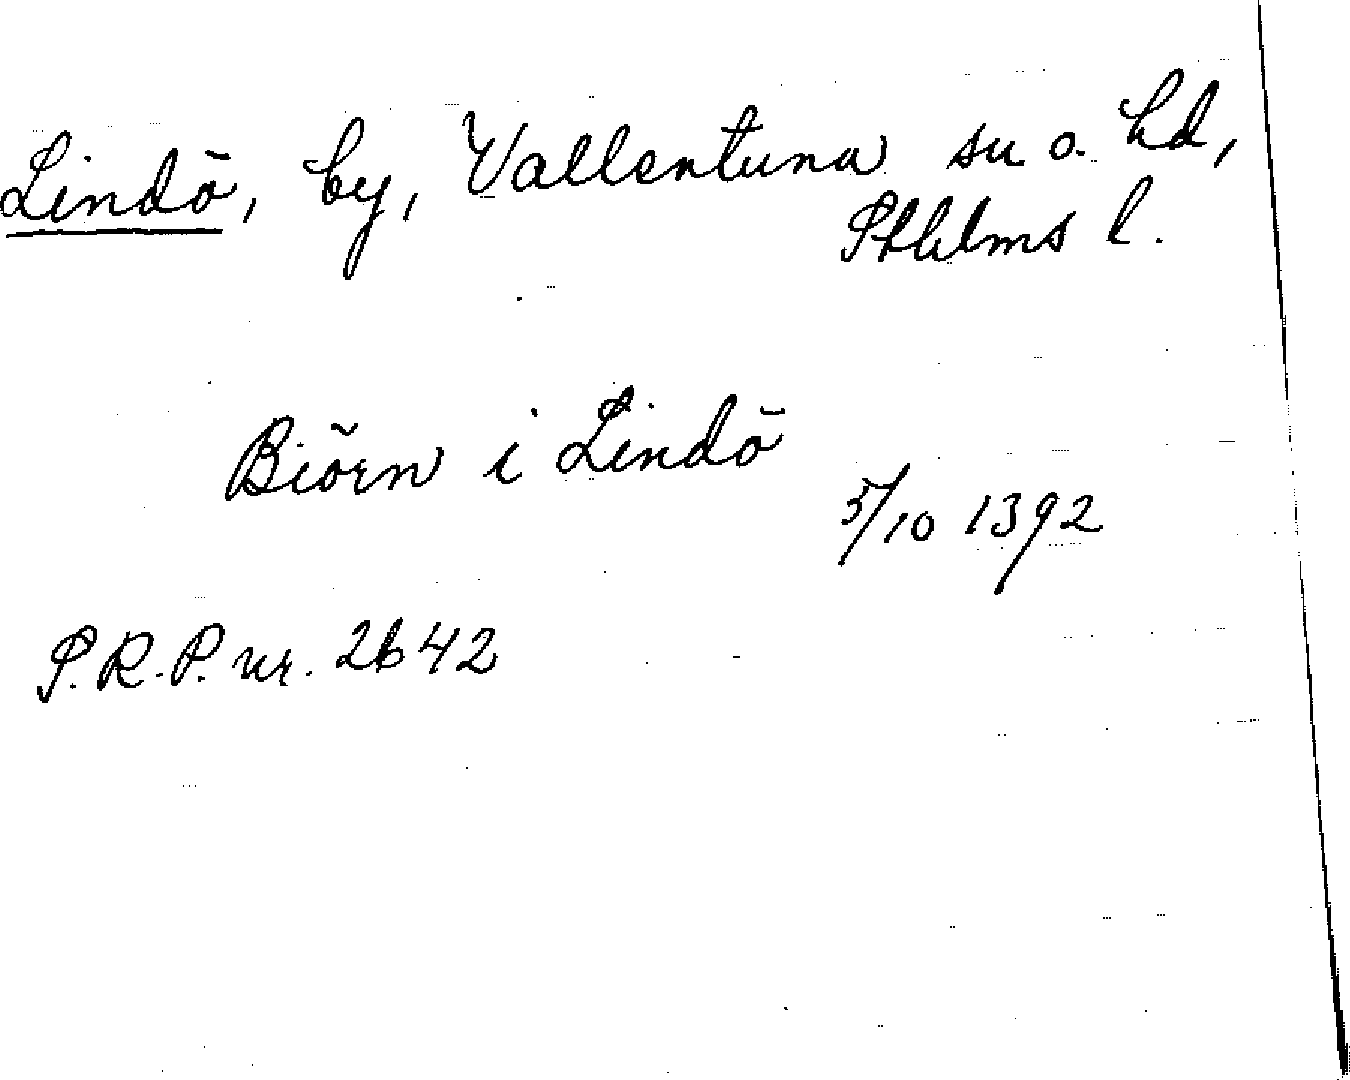 Lindö, by, Vallentuna sn o. hd,
Sthlms l.
Biörn i Lindö
5/10 1392
S.R.P. nr. 2642